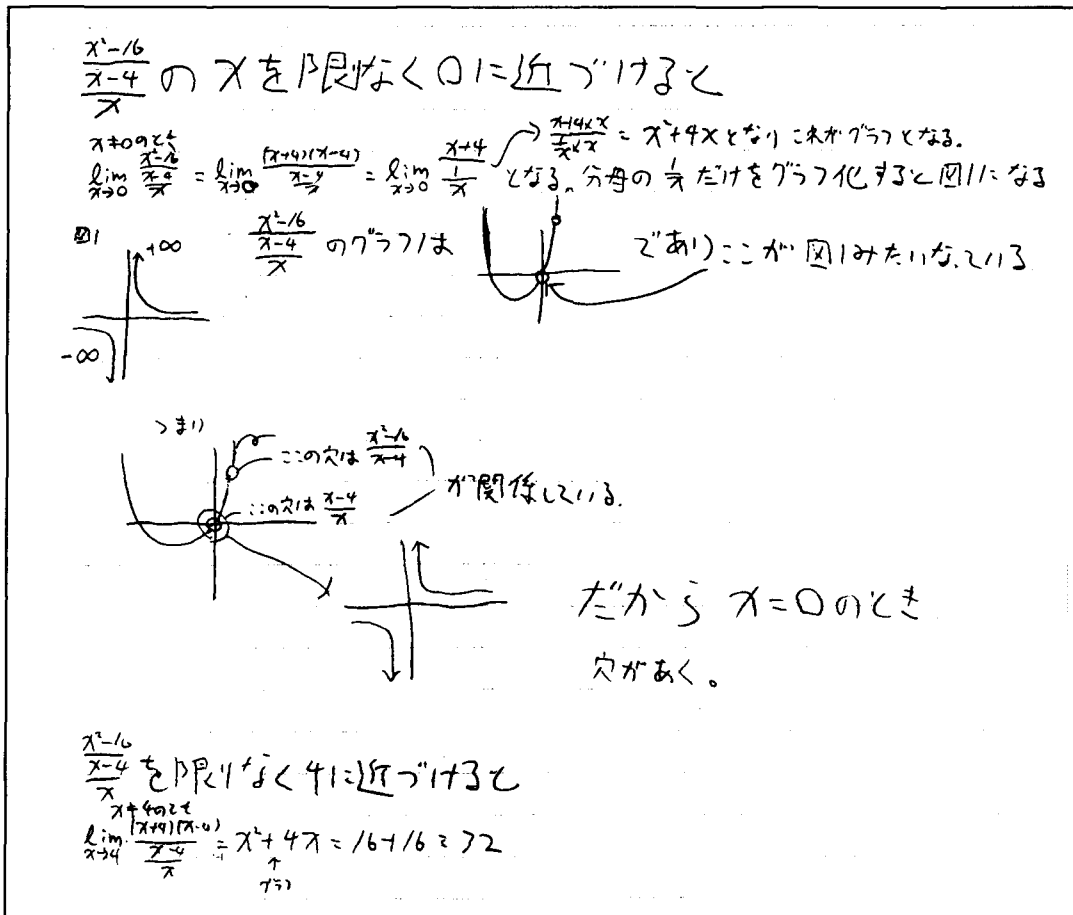 (x²-16)/((x-4)/x) の xを限なく0に近づけると
x≠0のとき
lim x→0 (x²-16)/((x-4)/x) = lim x→0 ((x+4)(x-4))/((x-4)/x) = lim x→0 (x+4)/(1/x) となる。分母の 1/x だけをグラフ化すると図1になる
→ (x+4×x)/(1/x×x) = x²+4xとなり これがグラフとなる。
図1 +∞ -∞
(x²-16)/((x-4)/x) のグラフは であり ここが図1みたいなっている
つまり
ここの穴は (x²-16)/(x-4)
ここの穴は (x-4)/x
が関係している。
だから x=0のとき
穴があく。
(x²-16)/((x-4)/x) を限りなく4に近づけると
x≠4のとき
lim x→4 ((x+4)(x-4))/((x-4)/x) = x²+4x = 16+16=32
↑
グラフ